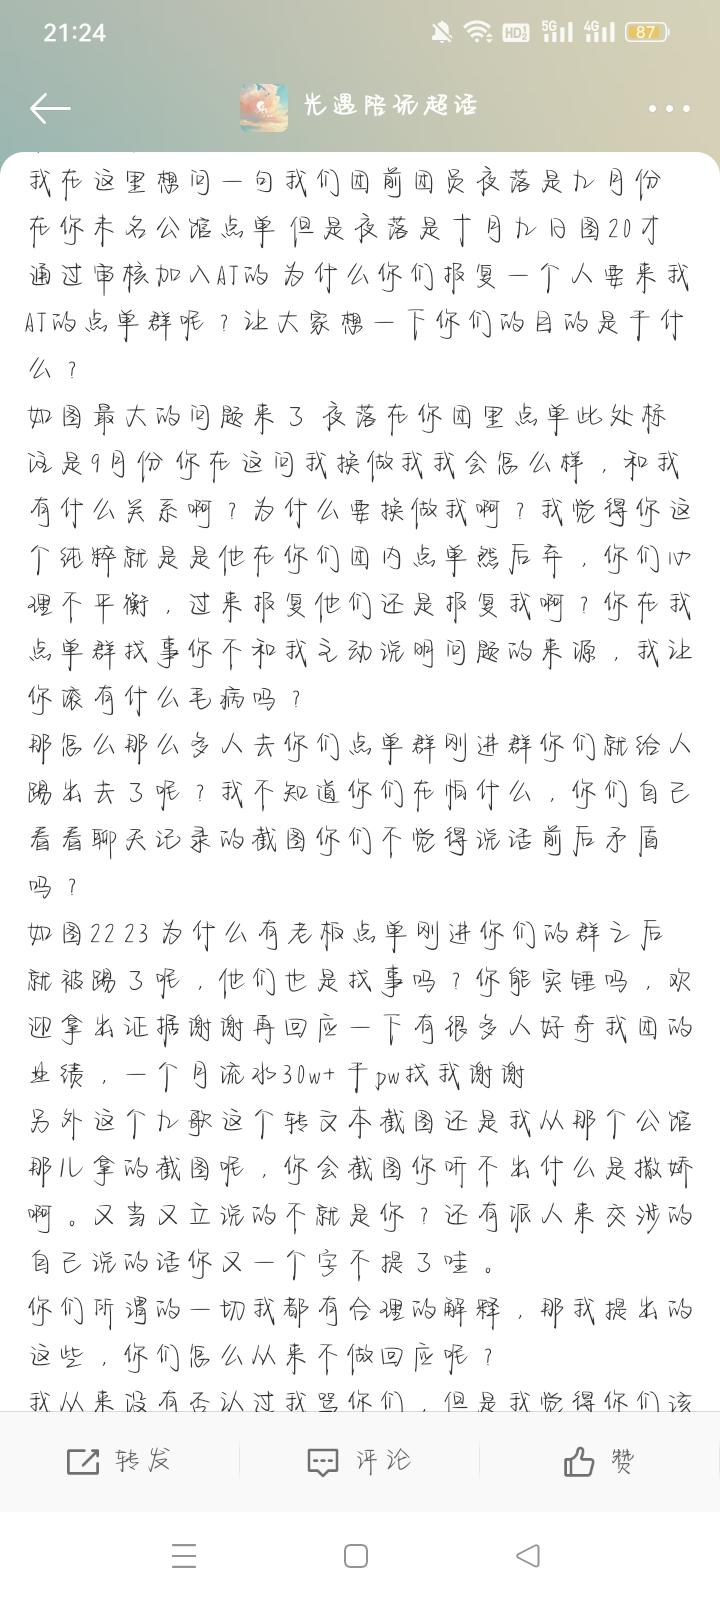 21:24
HD 5G 4G 87
光遇陪玩超话
我在这里想问一句我们团前团员夜落是九月份
在你未名公馆点单 但是夜落是十月九日图20才
通过审核加入AT的 为什么你们报复一个人要来我
AT的点单群呢？让大家想一下你们的目的是干什
么？
如图最大的问题来了 夜落在你团里点单此处标
注是9月份 你在这问我换做我我会怎么样，和我
有什么关系啊？为什么要换做我啊？我觉得你这
个纯粹就是是他在你们团内点单然后弃，你们心
理不平衡，过来报复他们还是报复我啊？你在我
点单群找事你不和我主动说明问题的来源，我让
你滚有什么毛病吗？
那怎么那么多人去你们点单群刚进群你们就给人
踢出去了呢？我不知道你们在怕什么，你们自己
看看聊天记录的截图你们不觉得说话前后矛盾
吗？
如图22 23 为什么有老板点单刚进你们的群之后
就被踢了呢，他们也是找事吗？你能实锤吗，欢
迎拿出证据谢谢再回应一下有很多人好奇我团的
业绩，一个月流水30w+ 干pw找我谢谢
另外这个九歌这个转文本截图还是我从那个公馆
那儿拿的截图呢，你会截图你听不出什么是撒娇
啊。又当又立说的不就是你？还有派人来交涉的
自己说的话你又一个字不提了哇。
你们所谓的一切我都有合理的解释，那我提出的
这些，你们怎么从来不做回应呢？
我从来没有否认过我骂你们，但是我觉得你们该
转发 评论 赞